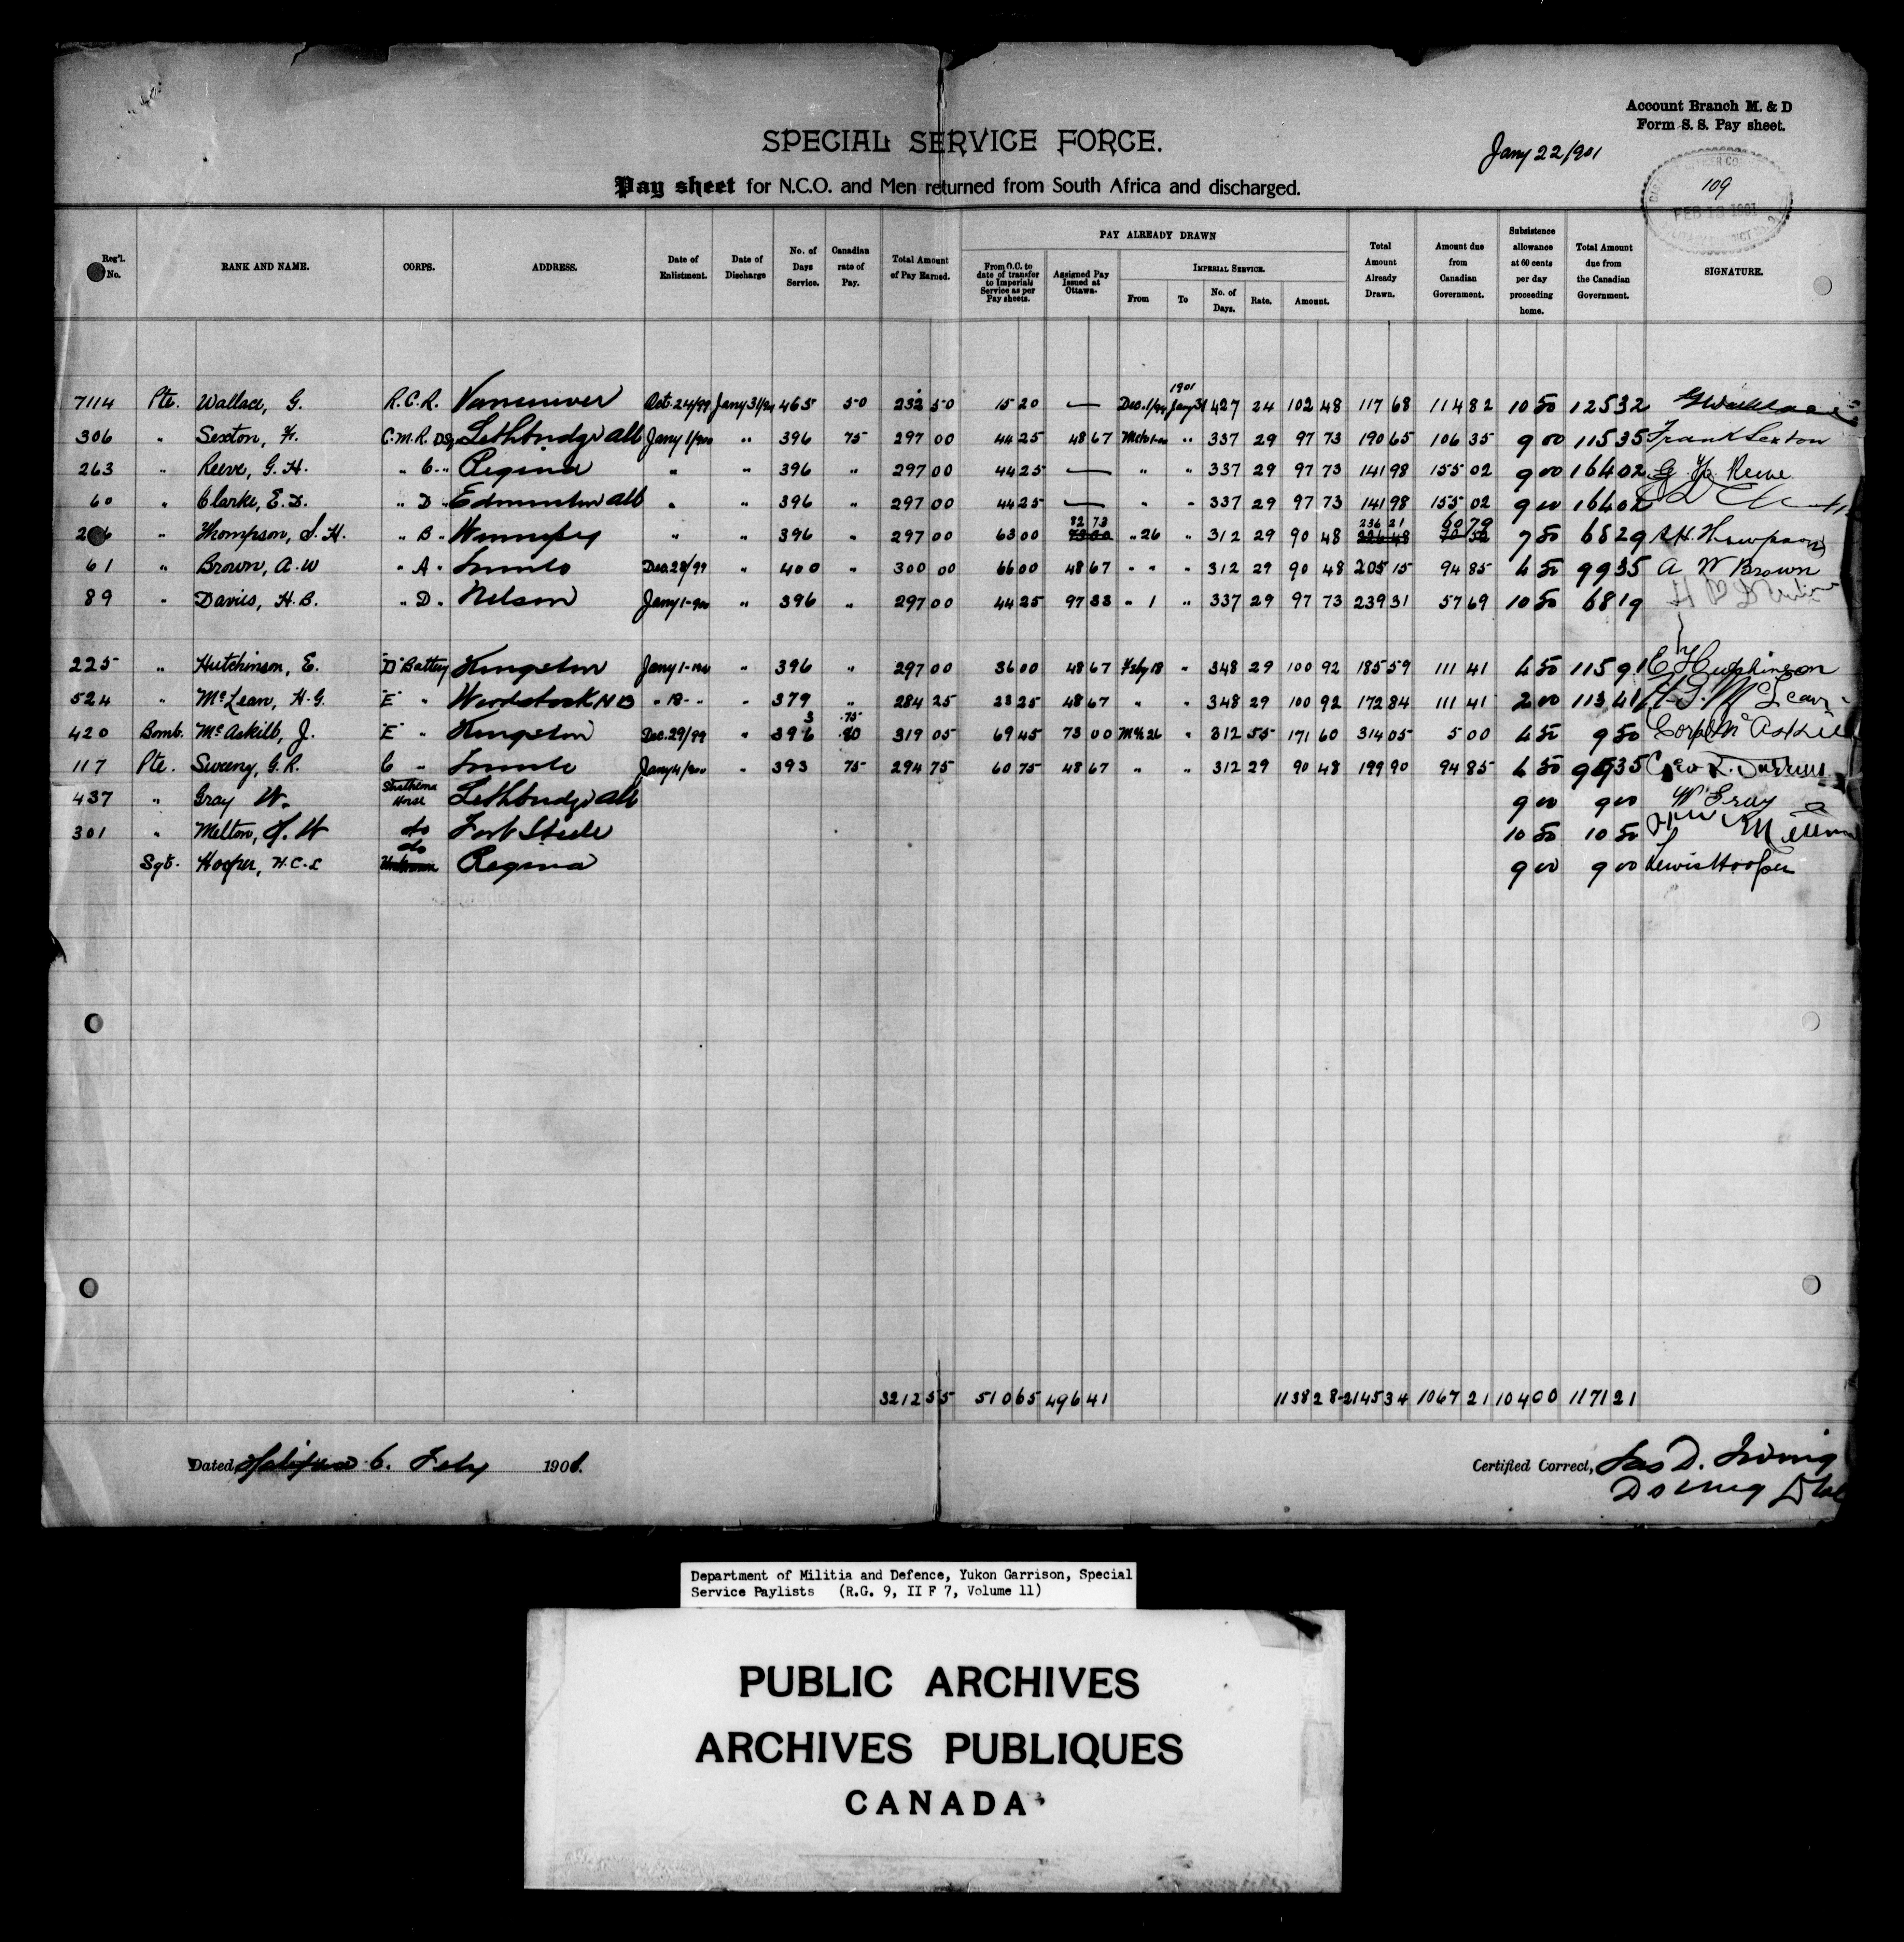 Account Branch M. & D
Form S. S. Pay sheet.
Jany 22/901
109
FEB 13 1901
SPECIAL SERVICE FORCE.
Pay sheet for N.C.O. and Men returned from South Africa and discharged.
Reg'l. No. RANK AND NAME. CORPS. ADDRESS. Date of Enlistment. Date of Discharge No. of Days Service. Canadian rate of Pay. Total Amount of Pay Earned. PAY ALREADY DRAWN From O.C. to date of transfer to Imperial Service as per Pay sheets. Assigned Pay Issued at Ottawa. IMPERIAL SERVICE. From To No. of Days. Rate. Amount. Total Amount Already Drawn. Amount due from Canadian Government. Subsistence allowance at 60 cents per day proceeding home. Total Amount due from the Canadian Government. SIGNATURE.
7114 Pte. Wallace, G. R.C.R. Vancouver Oct. 24/99 Jany 31/01 465 50 232 50 15 20 — Dec. 1/99 1901 Jany 31 427 24 102 48 117 68 114 82 10 50 125 32 G Wallace
306 " Sexton, F. C.M.R. D Sq Lethbridge Alb Jany 1/900 " 396 75 297 00 44 25 48 67 Mch 1-00 " 337 29 97 73 190 65 106 35 9 00 115 35 Frank Sexton
263 " Reeve, G. H. " C " Regina " " 396 " 297 00 44 25 — " " 337 29 97 73 141 98 155 02 9 00 164 02 G H Reeve
60 " Clarke, E. D. " D " Edmonton Alb " " 396 " 297 00 44 25 — " " 337 29 97 73 141 98 155 02 9 00 164 02
" Thompson, S. H. " B " Winnipeg " " 396 " 297 00 63 00 82 73 73 00 " 26 " 312 29 90 48 236 21 226 48 60 79 70 52 7 50 68 29 S H Thompson
61 " Brown, A. W " A " Toronto Dec. 28/99 " 400 " 300 00 66 00 48 67 " " " 312 29 90 48 205 15 94 85 4 50 99 35 A W Brown
89 " Davies, H. B. " D " Nelson Jany 1-900 " 396 " 297 00 44 25 97 33 " 1 " 337 29 97 73 239 31 57 69 10 50 68 19 H B Davies
225 " Hutchinson, E. "D" Battery Kingston Jany 1-1900 " 396 " 297 00 36 00 48 67 Feby 18 " 348 29 100 92 185 59 111 41 4 50 115 91 E Hutchinson
524 " McLean, H. G. "E" " Woodstock N B " 18 - " " 379 " 284 25 23 25 48 67 " " 348 29 100 92 172 84 111 41 2 00 113 41 H. G. McLean
420 Bomb. McAskill, J. "E" " Kingston Dec. 29/99 " 396 3 .75 .80 319 05 69 45 73 00 Mch 26 " 312 55 171 60 314 05 5 00 4 50 9 50 Corpl McAskill
117 Pte. Sweeny, G. R. C " Toronto Jany 4/900 " 393 75 294 75 60 75 48 67 " " 312 29 90 48 199 90 94 85 4 50 99 35 Geo R.
437 " Gray W. Strathcona Horse Lethbridge Alb 9 00 9 00 W Gray
301 " Melton, J. W do Fort Steele 10 50 10 50
Sgt. Hooper, H. C. L do Regina 9 00 9 00 Lewis Hooper
3212 55 510 65 496 41 1138 28 2145 34 1067 21 104 00 1171 21
Dated Halifax 6. Feby 1901.
Certified Correct, Jas D. Irving
Department of Militia and Defence, Yukon Garrison, Special
Service Paylists (R.G. 9, II F 7, Volume 11)
PUBLIC ARCHIVES
ARCHIVES PUBLIQUES
CANADA